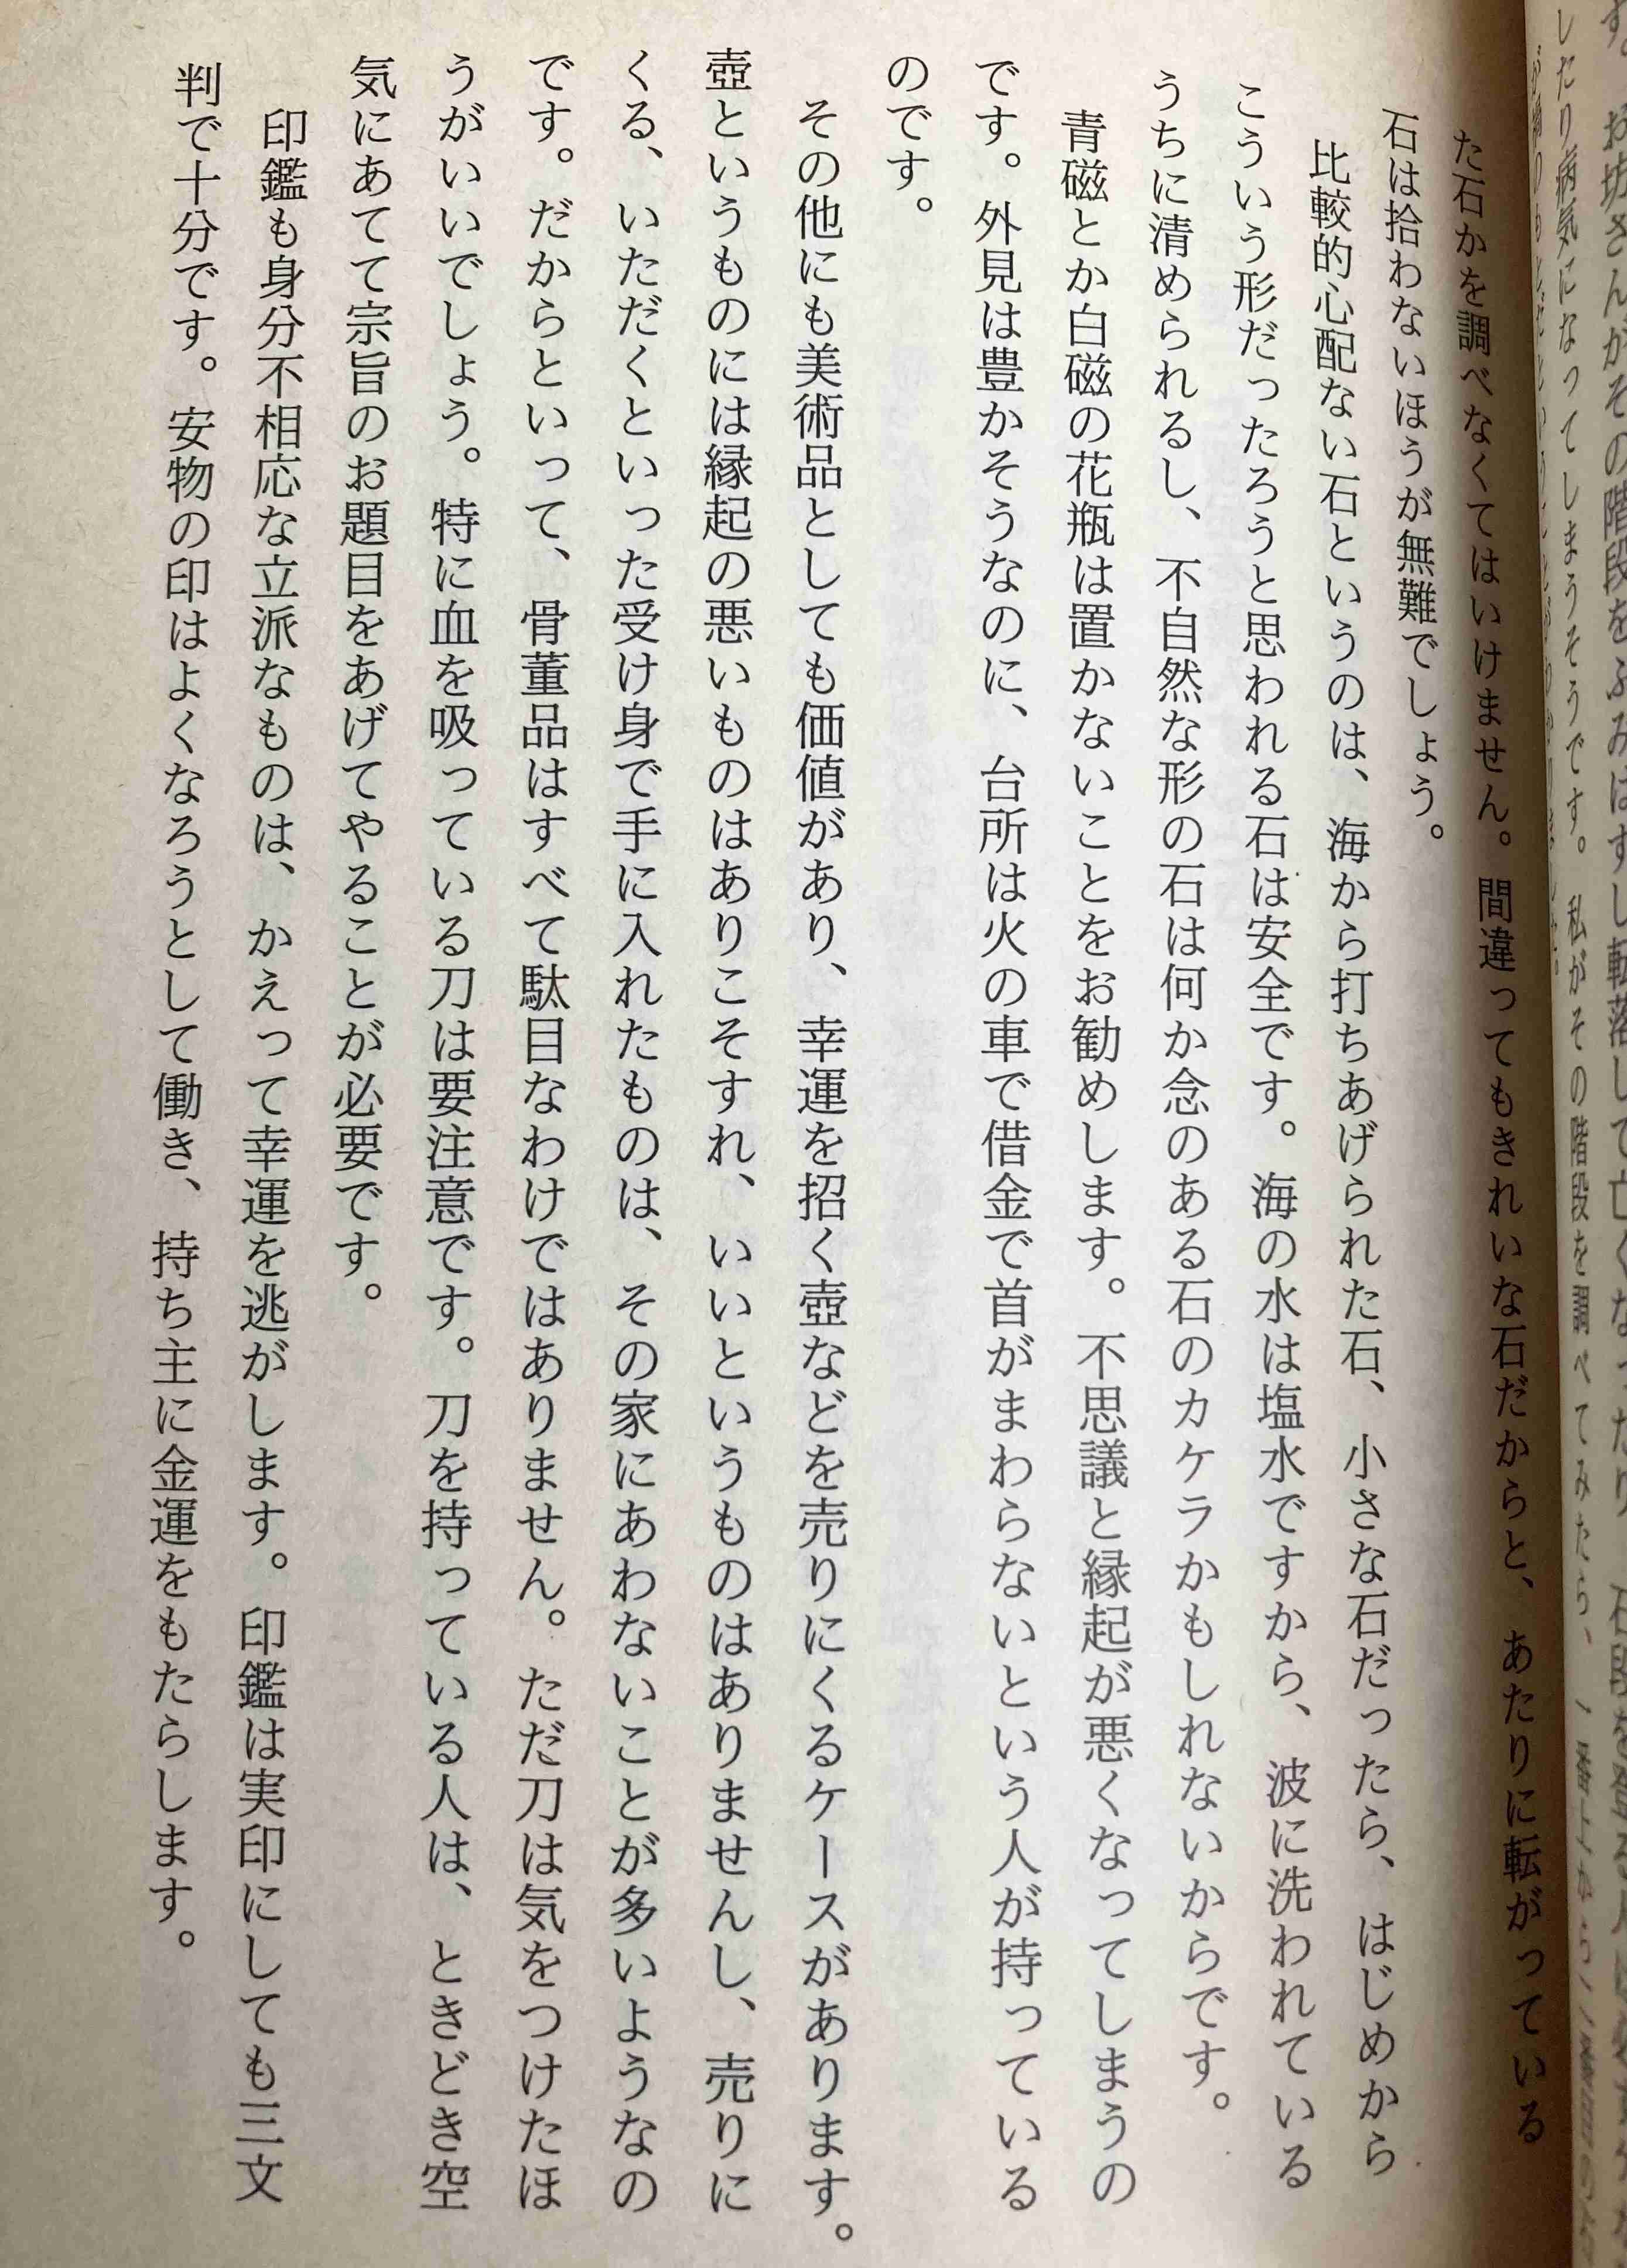 す。お坊さんがその階段をふみはずし転落して亡くなったり、石段を登る人
したり病気になってしまうそうです。私がその階段を調べてみたら、
た石かを調べなくてはいけません。間違ってもきれいな石だからと、あたりに転がっている
石は拾わないほうが無難でしょう。
比較的心配ない石というのは、海から打ちあげられた石、小さな石だったら、はじめから
こういう形だったろうと思われる石は安全です。海の水は塩水ですから、波に洗われている
うちに清められるし、不自然な形の石は何か念のある石のカケラかもしれないからです。
青磁とか白磁の花瓶は置かないことをお勧めします。不思議と縁起が悪くなってしまうの
です。外見は豊かそうなのに、台所は火の車で借金で首がまわらないという人が持っている
のです。
その他にも美術品としても価値があり、幸運を招く壺などを売りにくるケースがあります。
壺というものには縁起の悪いものはありこそすれ、いいというものはありませんし、売りに
くる、いただくといった受け身で手に入れたものは、その家にあわないことが多いようなの
です。だからといって、骨董品はすべて駄目なわけではありません。ただ刀は気をつけたほ
うがいいでしょう。特に血を吸っている刀は要注意です。刀を持っている人は、ときどき空
気にあてて宗旨のお題目をあげてやることが必要です。
印鑑も身分不相応な立派なものは、かえって幸運を逃がします。印鑑は実印にしても三文
判で十分です。安物の印はよくなろうとして働き、持ち主に金運をもたらします。